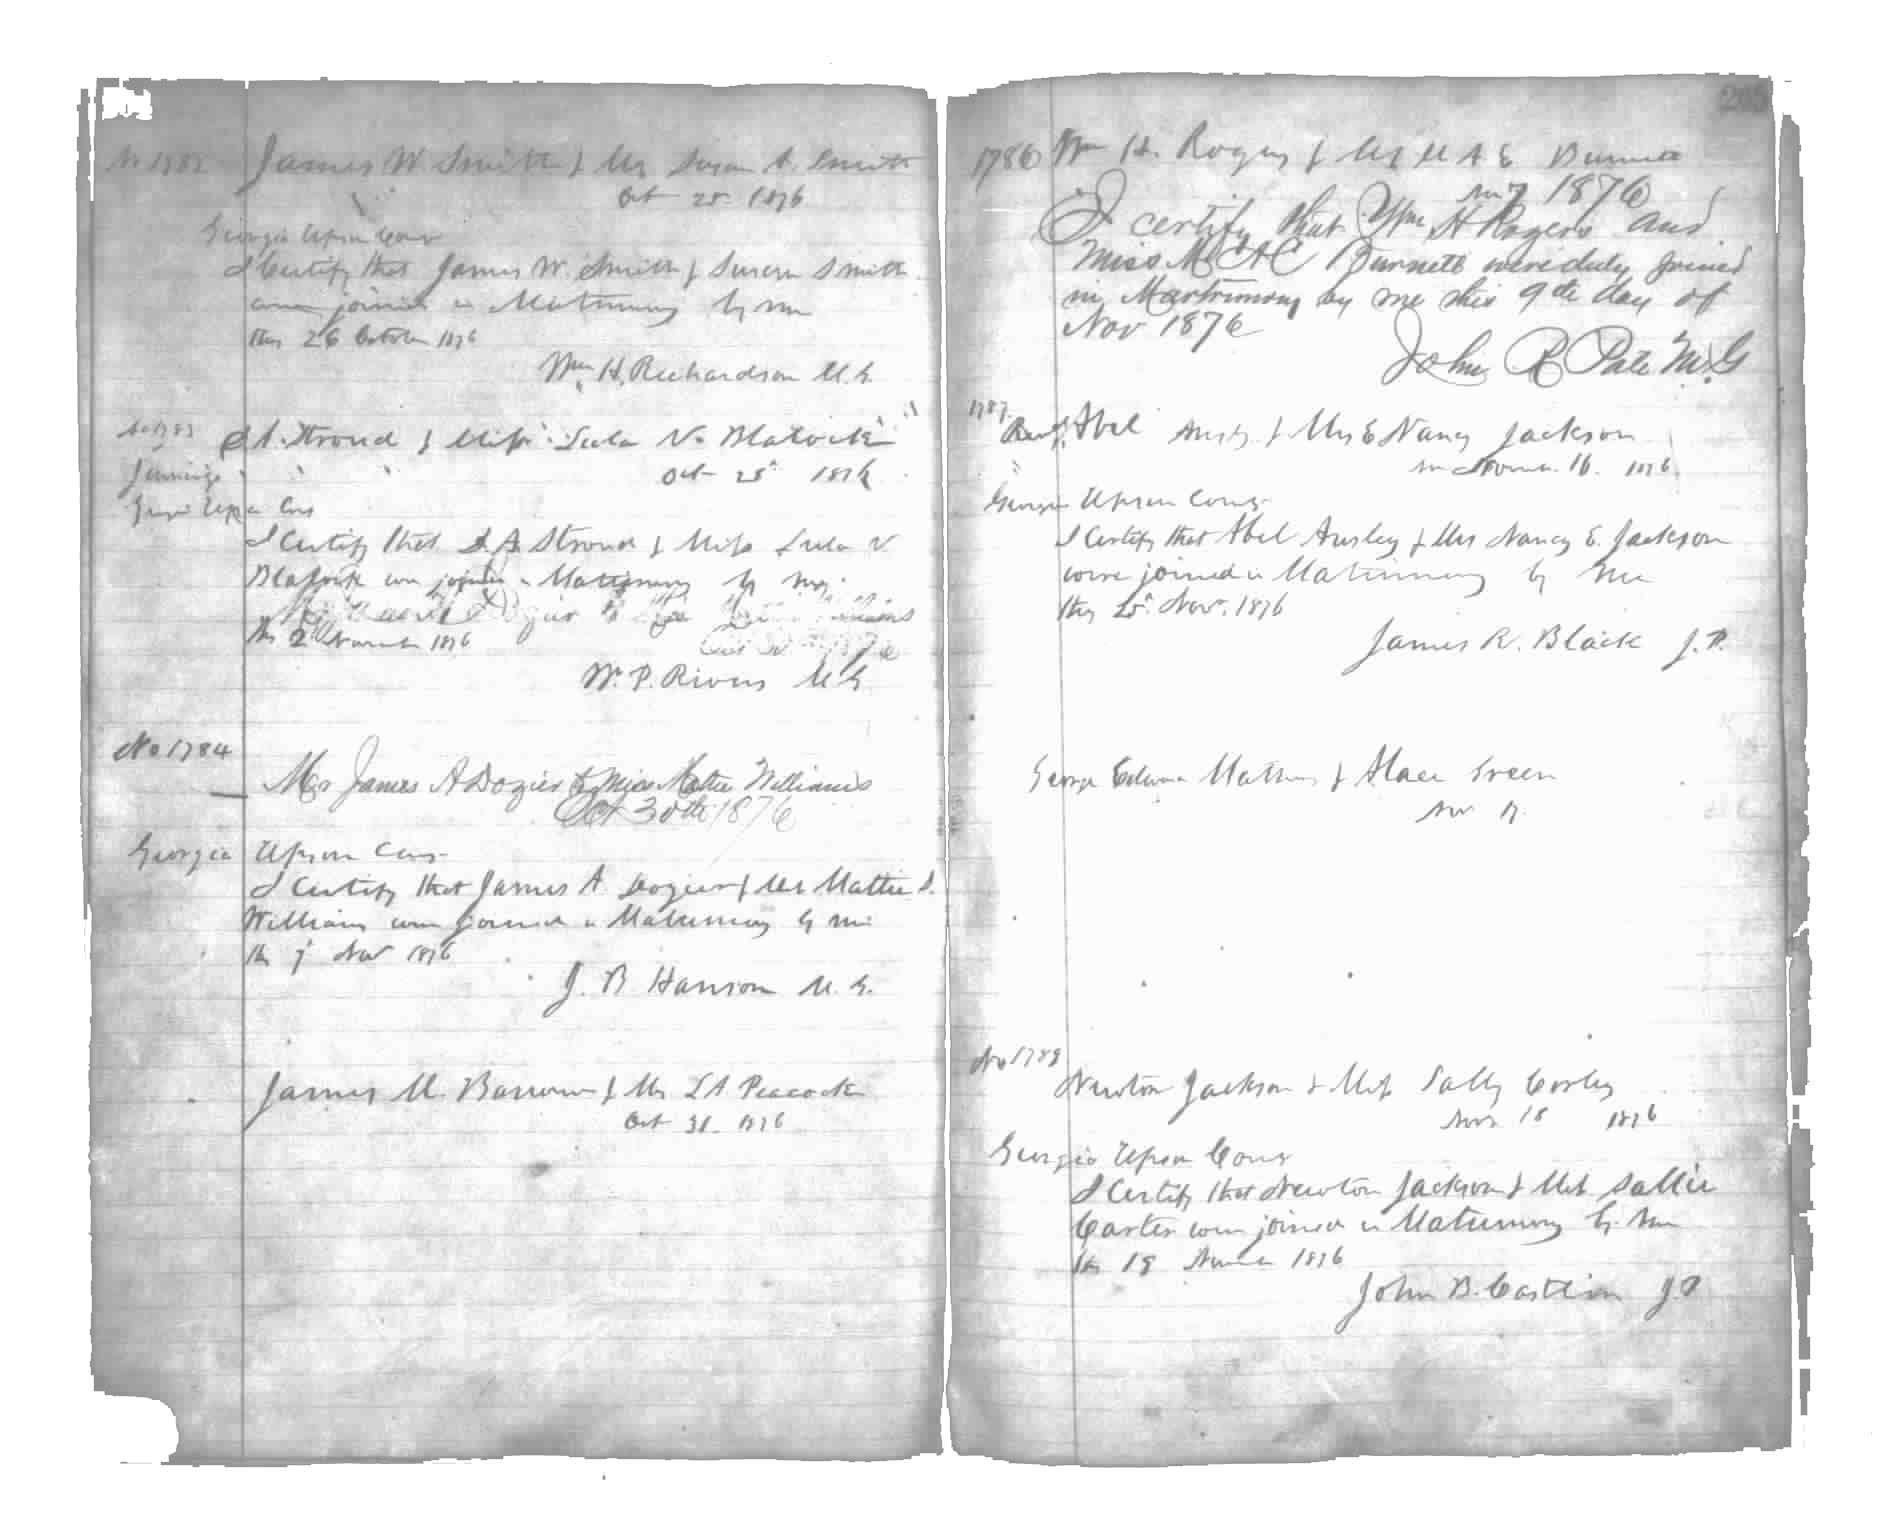 No 1782 James W Smith & Ms Susan A. Smith
Oct 25 1876
Georgia Upson County
I Certify that James W. Smith & Susan Smith
were joined in Matrimony by me
this 26 October 1876
Wm H. Richardson M.G.
No 1783 S A. Stroud & Miss Lula V. Blalock
Oct 25 1876
Georgia Upson Couy
I Certify that S. A. Stroud & Miss Lula V
Blalock were joined in Matrimony by me
this 2 November 1876
W. P. Rivers M G
No 1784
Mr James A Dozier & Miss Mattie Williams
Oct 30th 1876
Georgia Upson Couy
I Certify that James A Dozier & Ms Mattie S.
Williams were joined in Matrimony by me
this 7 Nov 1876
J. B Hanson M. G.
James M. Barrow & Ms L A Peacock
Oct 31 1876
265
1786 Wm H. Rogers & Ms M A E Burnett
Nov 7 1876
I certify that Wm H Rogers and
Miss M A E Burnett were duly joined
in Martrimony by me this 9th day of
Nov 1876
John R Pate M.G
1787
Abel Ansley & Mrs E Nancy Jackson
16. 1876
Georgia Upson County
I Certify that Abel Ansley & Mrs Nancy E. Jackson
were joined in Matrimony by me
this Nov. 1876
James R. Black J.P.
George Mathews & Green
Nov 17
No 1789
Newton Jackson & Miss Sally
Nov 18 1876
Georgia Upson County
I Certify that Newton Jackson & Miss Sallie
Carter were joined in Matrimony by me
this 19 November 1876
John B. Castlen J.P